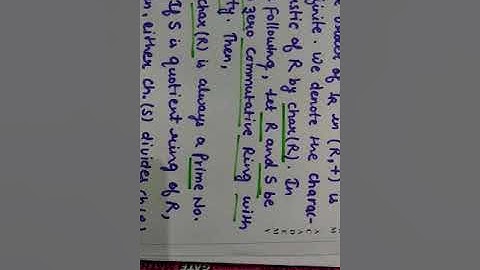 order of 1R in (R,+) is
finite. We denote the charac-
istic of R by char(R). In
following, Let R and S be
zero commutative Ring with
ty. Then,
char(R) is always a Prime No.
If S is quotient ring of R,
either ch.(S) divides